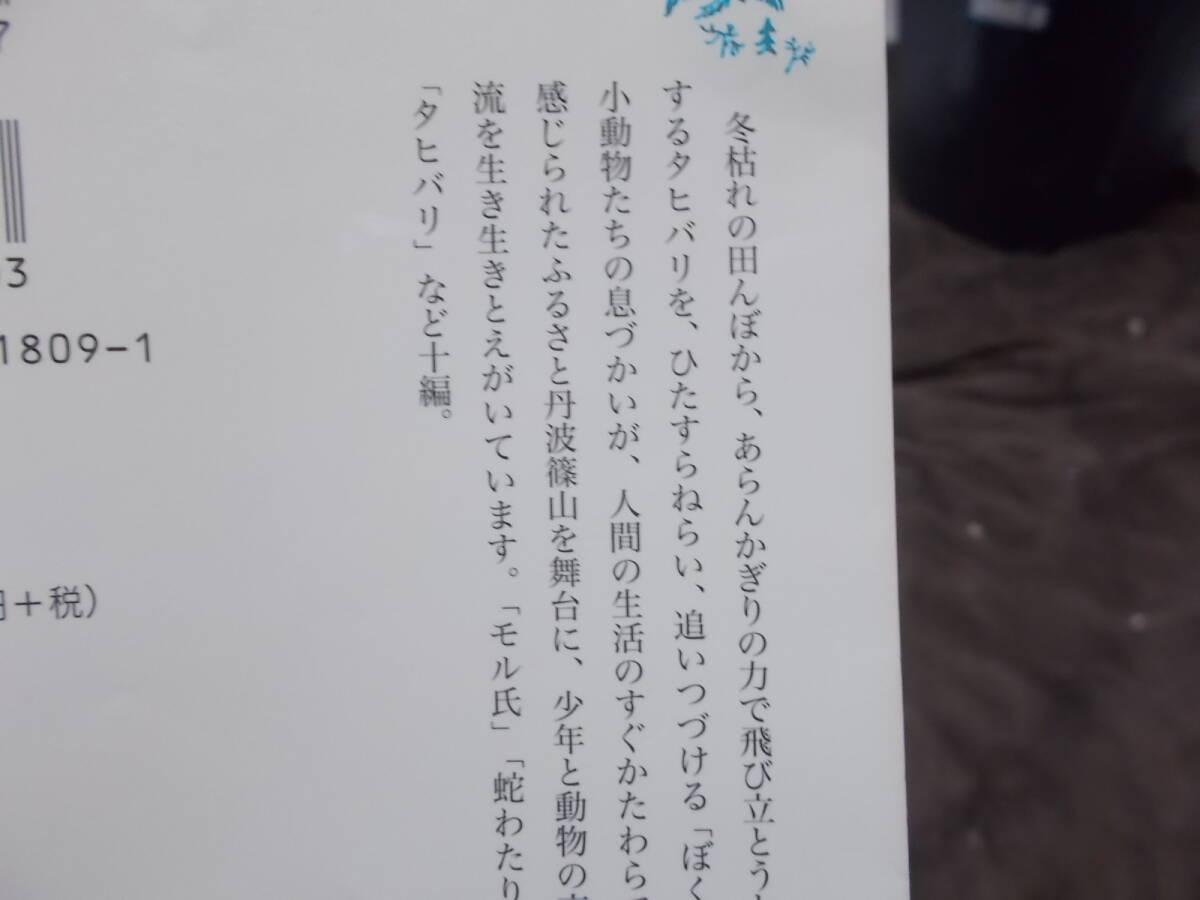 冬枯れの田んぼから、あらんかぎりの力で飛び立とう
するタヒバリを、ひたすらねらい、追いつづける「ぼく
小動物たちの息づかいが、人間の生活のすぐかたわらで
感じられたふるさと丹波篠山を舞台に、少年と動物の
流を生き生きとえがいています。「モル氏」「蛇わたり
「タヒバリ」など十編。
7
03
1809-1
円+税)